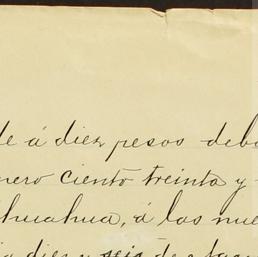 de á diez pesos deb
nero ciento treinta y
hihuahua, á las nue
dia diez y seis de